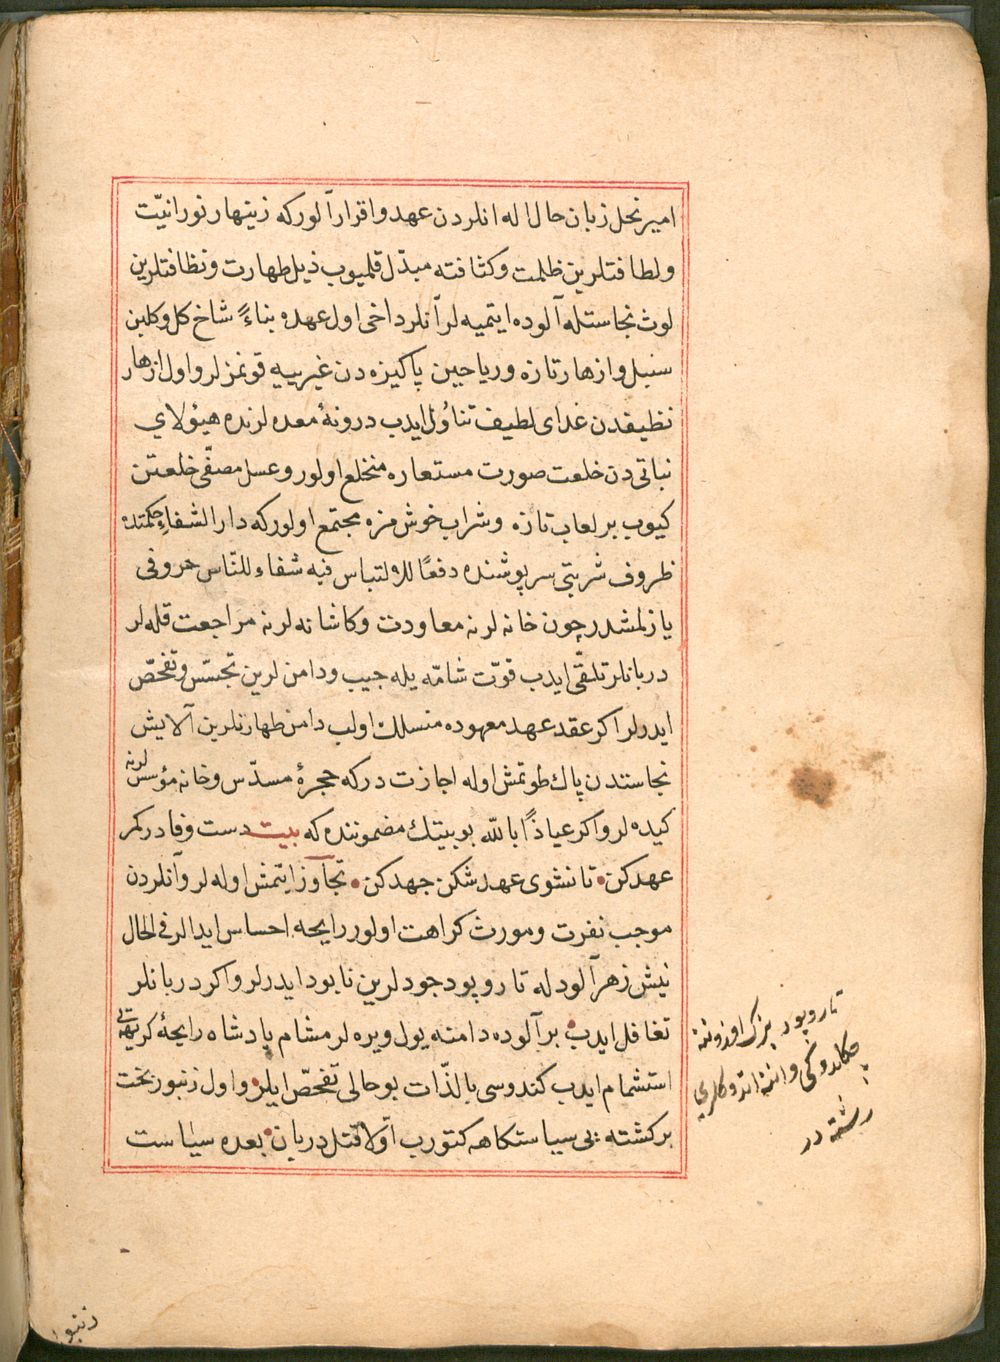 امیر نحل زبان حال اله انلردن عهد واقرار آلور که زینهار نورانیّت
ولطافتلرین ظلمت وکثافته مبدّل قلمیوب ذیل طهارت ونظافتلرین
لوث نجاستله آلوده ایتمیه لر آنلر داخی اول عهده بناءً شاخ کل وکلبن
سنبل وازهار تازه وریاحین پاکیزه دن غیرییه قونمزلر واول ازهار
نظیفدن غدای لطیف تناوُل ایدب درونهٔ معده لرنده هیؤلای
نباتی دن خلعت صورت مستعاره منخلع اولور وعسل مصفّی خلعتن
کیوب بر لعاب تازه وشراب خوش مزه مجتمع اولور که دار الشفاءِ حکمتده
ظروف شربتی سرپوشنده دفعًا للالتباس فیه شفاء للنّاس حروفی
یازلمشدر چون خانه لرنه معاودت وکاشانه لرنه مراجعت قله لر
دربانلر تلقّی ایدب قوّت شامّه یله جیب ودامن لرین تجسّس وتفحّص
ایدرلر اکر عقد عهد معهوده منسلك اولب دامن طهارتلرین آلایش
نجاستدن پاك طوتمش اوله اجازت در که حجرهٔ مسدّس وخانه مؤسس لرنه
کیده لر واکر عیاذًا بالله بو بیتك مضموننده که بیت دست وفا در کمر
عهد کن • تا نشوی عهد شکن جهد کن • تجاوز ایتمش اوله لر وآنلردن
موجب نفرت ومورث کراهت اولور رایحه احساس ایدالر فی الحال
نیش زهرآلود له تار وپود وجودلرین نابود ایدرلر واکر دربانلر
تغافل ایدب برآلوده دامنه یول ویره لر مشام پادشاه رایحهٔ کریهه‌یی
استشمام ایدب کندوسی بالذّات بو حالی تفحّص ایلر واول زنبور بخت
برکشته یی سیاستکاهه کتورب اوّلا قتل دربان بعده سیاست
تار وپود
رشته در
زنبور